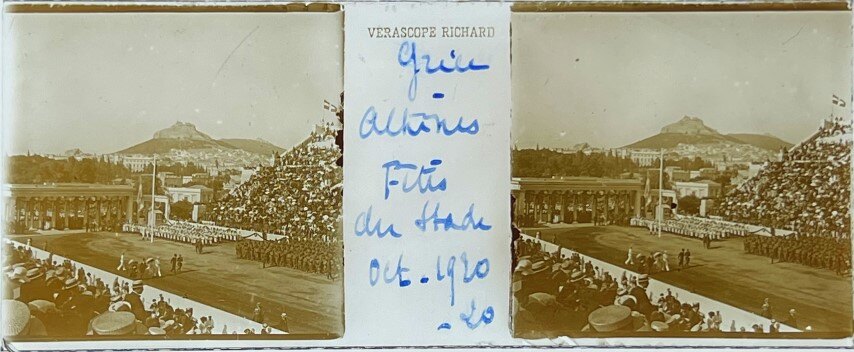 VERASCOPE RICHARD
Grèce
-
Athènes
Fêtes
du Stade
Oct. 1920
- 20